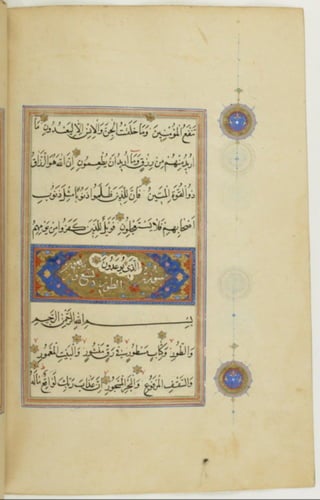 تنفع المؤمنين وما خلقت الجن والانس الا ليعبدون ما
اريد منهم من رزق وما اريد ان يطعمون ان الله هو الرزاق
ذو القوة المتين فان للذين ظلموا ذنوبا مثل ذنوب
اصحابهم فلا يستعجلون فويل للذين كفروا من يومهم
الذي يوعدون
سورة الطور تسع
بسم الله الرحمن الرحيم
والطور وكتاب مسطور في رق منشور والبيت المعمور
والسقف المرفوع والبحر المسجور ان عذاب ربك لواقع ماله